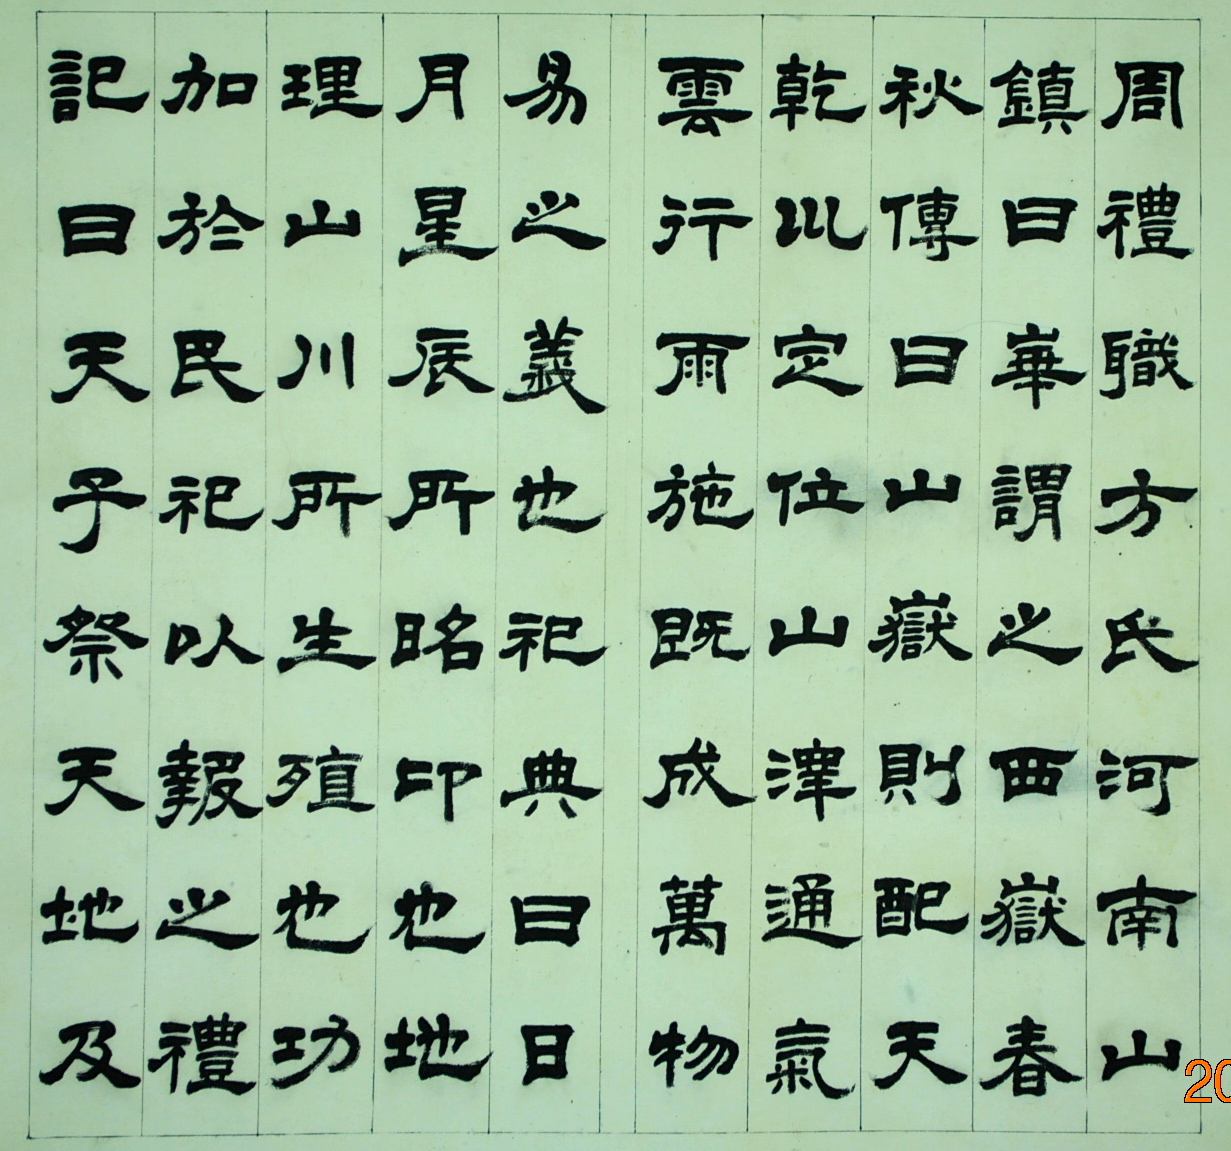 周禮職方氏河南山
鎮曰崋謂之西嶽春
秋傳曰山嶽則配天
乾㕥定位山澤通氣
雲行雨施既成萬物
易之義也祀典曰日
月星辰所昭卬也地
理山川所生殖也功
加於民祀以報之禮
記曰天子祭天地及
20